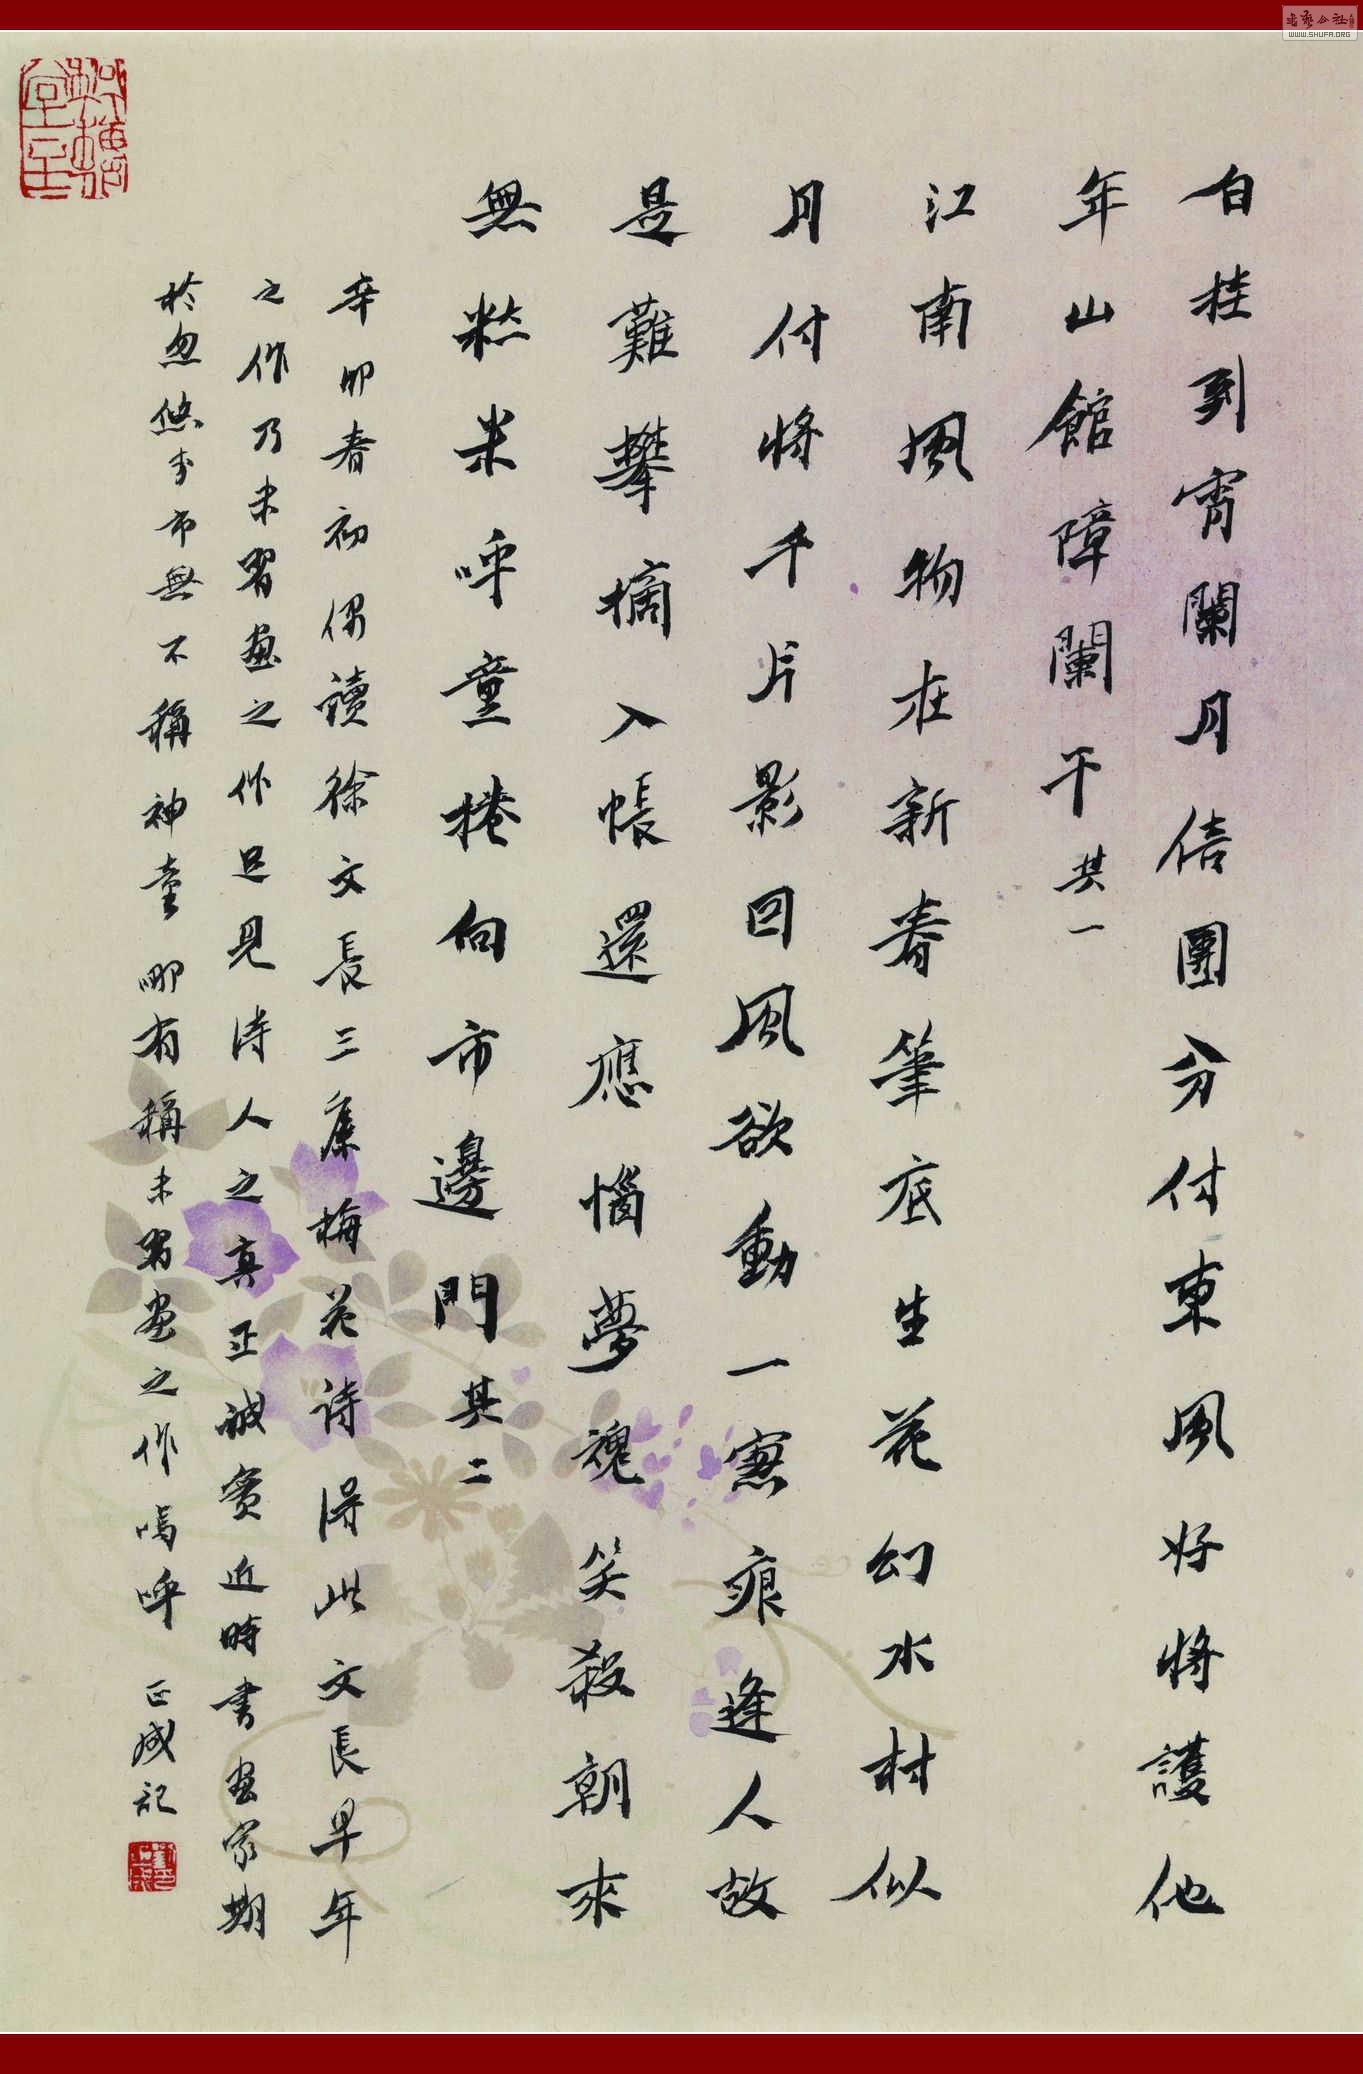 白桂到霄闌月倍團分付東風好將護他
年山館障闌干其一
江南風物在新春筆底生花幻水材似
月付將千片影回風欲動一窓痕逢人故
是難攀摘入帳還應惱夢魂笑殺朝來
無糕米呼童捲向市邊門其二
辛卯春初偶讀徐文長三廉梅花詩得此文長早年
之作乃未習畫之作足見詩人之真正誠實近時書畫家期
於忽悠於市無不稱神童哪有稱未習畫之作嗚呼
正成記
WWW.SHUFA.ORG